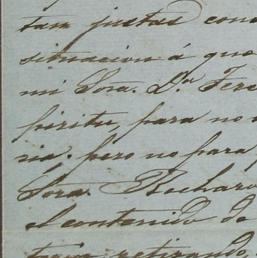 tan justas con
situacion á que
mi Sora. Da. Fere
piritu, para no
ria. pero no para
Sora. Rechar
el contenido de
tran retirando,